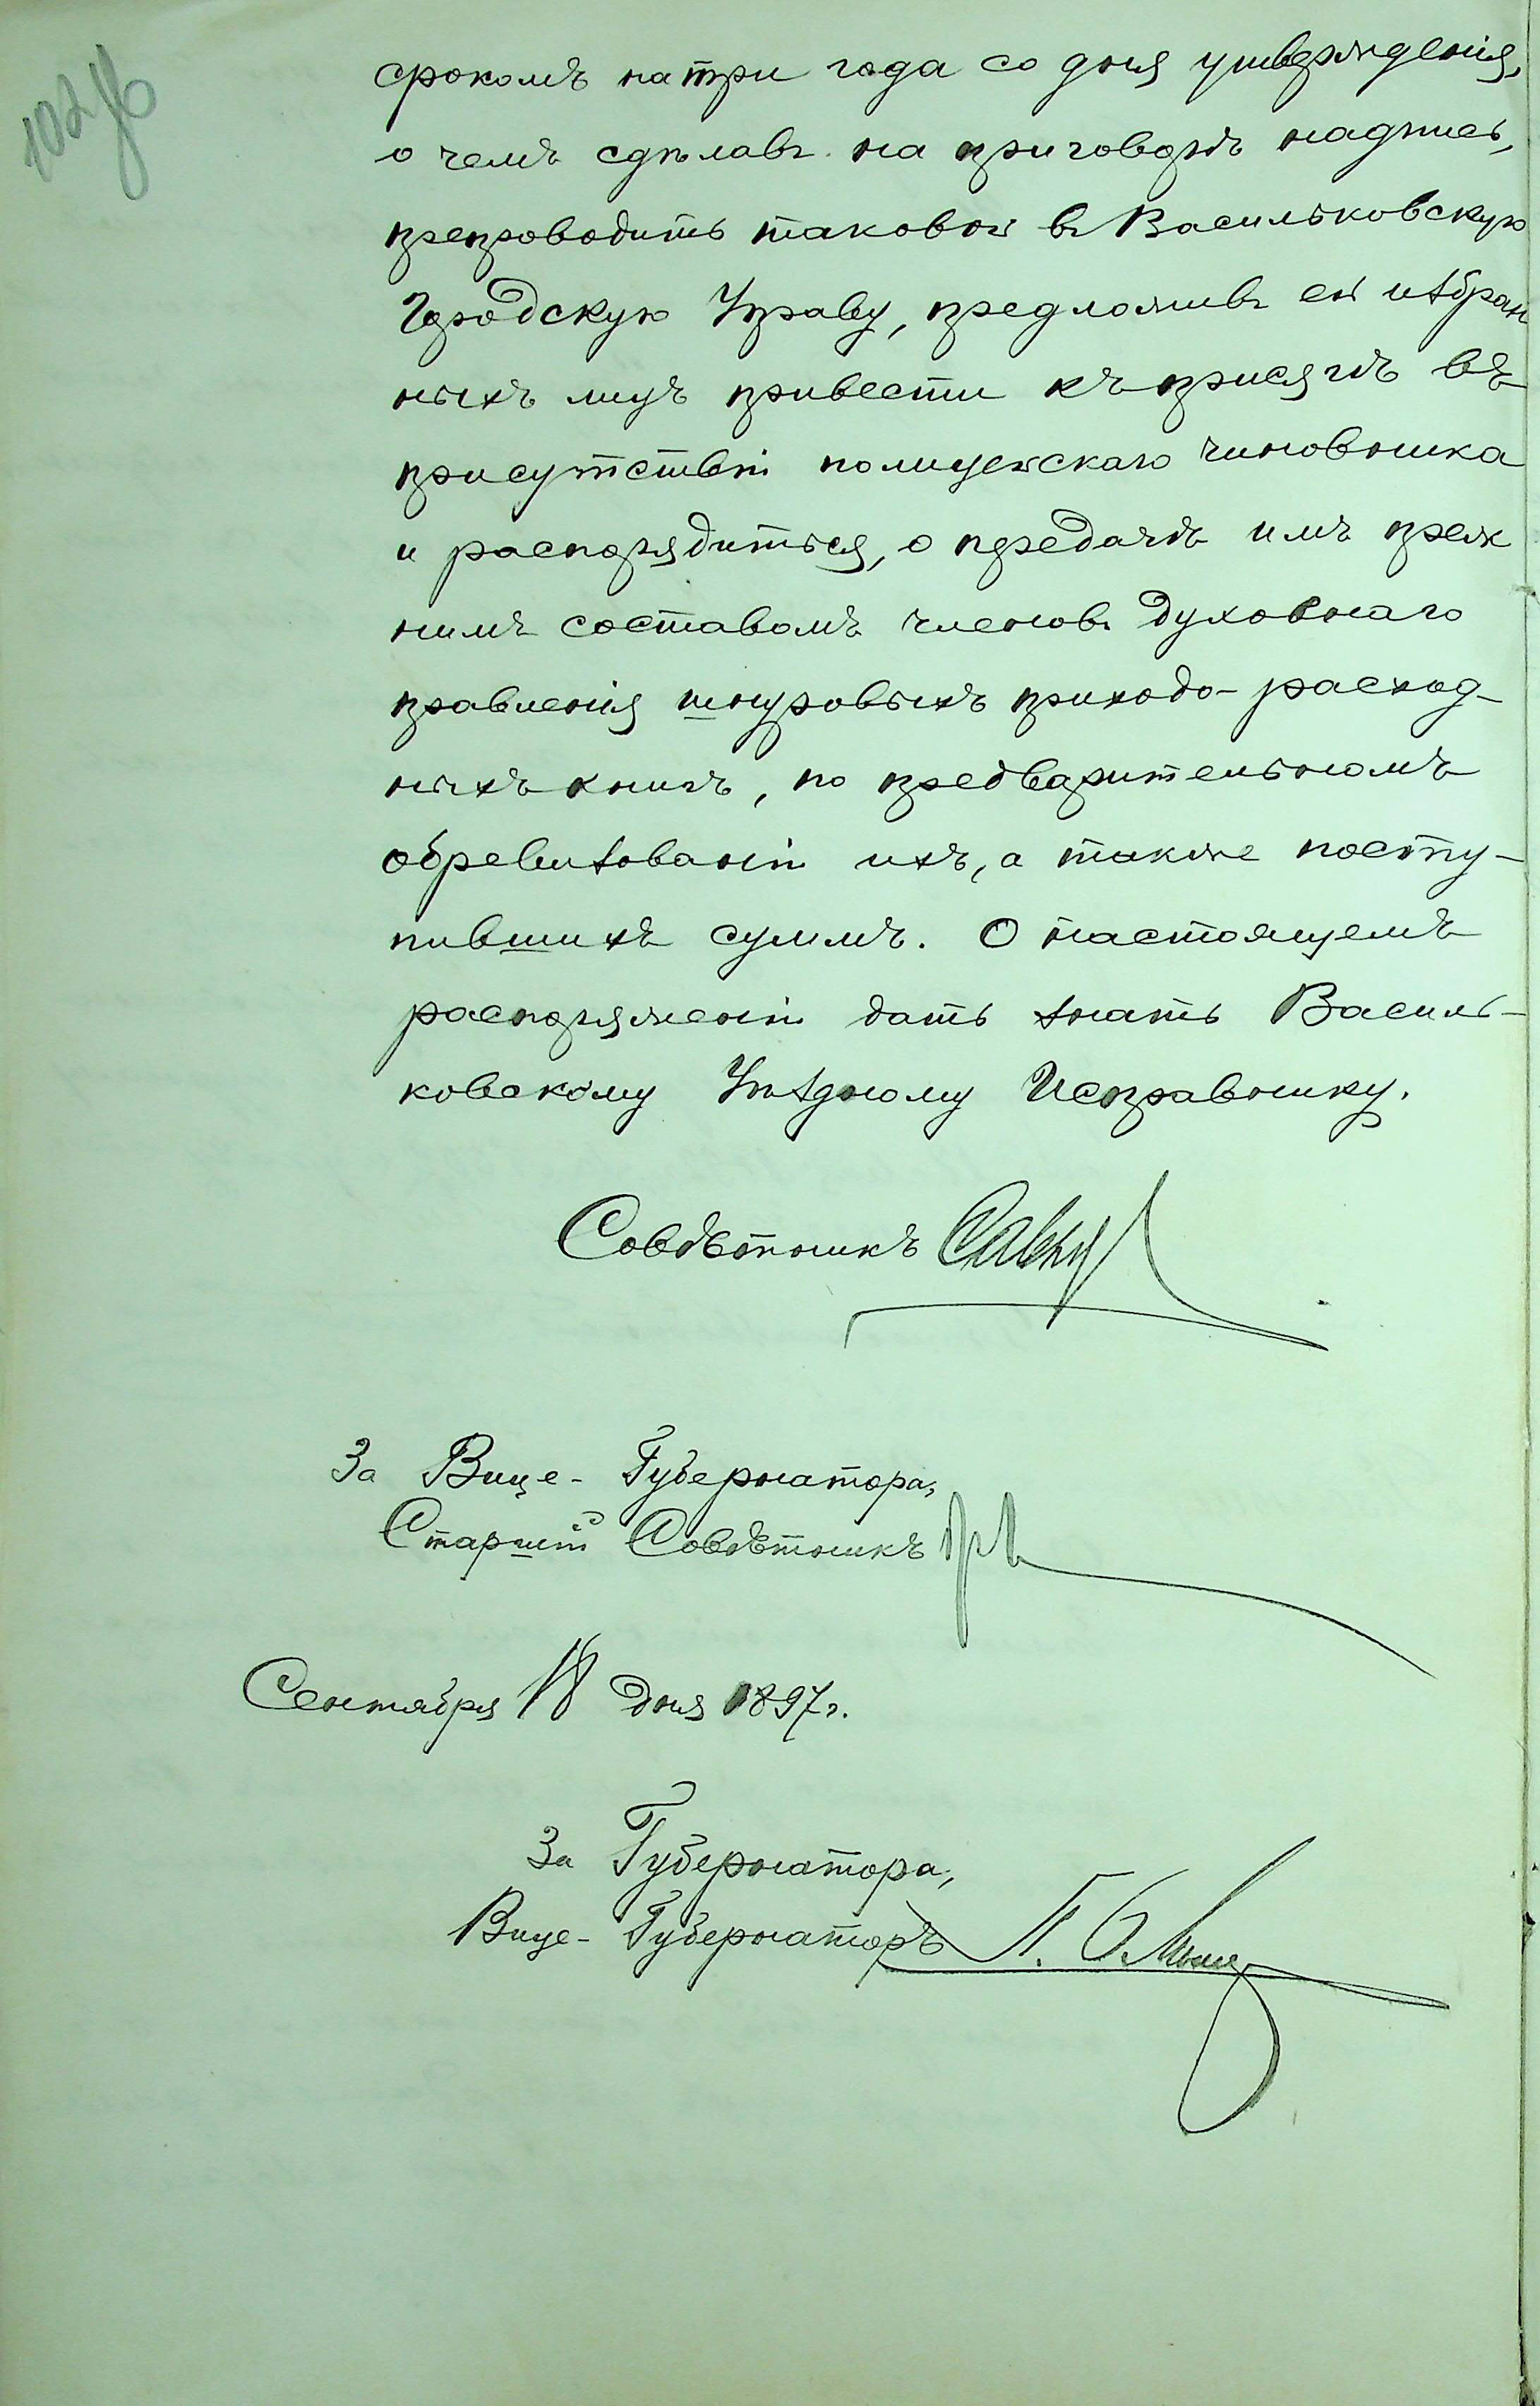 102 об
срокомъ на три года со дня утвержденія,
о чемъ сдѣлавъ на приговорѣ надпись,
препроводить таковой въ Васильковскую
Городскую Управу, предложивъ ей избран
ныхъ лицъ привести къ присягѣ въ
присутствіи полицейскаго чиновника
и распорядиться, о передачѣ имъ преж
нимъ составомъ членовъ духовнаго
правленія шнуровыхъ приходо-расход-
ныхъ книгъ, по предварительномъ
обревизованіи ихъ, а также посту-
пившихъ суммъ. О настоящемъ
распоряженіи дать знать Василь-
ковскому Уѣздному Исправнику.
Совѣтникъ
За Вице-Губернатора,
Старшій Совѣтникъ
Сентября 18 дня 1897 г.
За Губернатора,
Вице-Губернаторъ